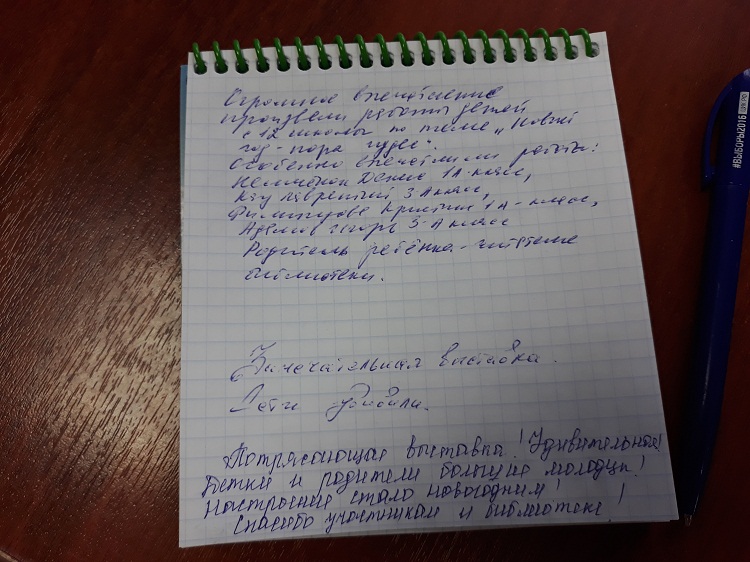 Огромное впечатление
произвели работы детей
с 12 школы по теме „Новый
год - пора чудес".
Особенно впечатлили работы:
Дениса 1А-класс,
Лаврентий 3 А класс,
Кристины 1А - класс,
Игорь 3-А класс
Родитель ребёнка - читателя
библиотеки.
Замечательная выставка.
Дети удивили.
Потрясающая выставка! Удивительная!
Детки и родители большие молодцы!
Настроение стало новогодним!
Спасибо участникам и библиотеке!
#ВЫБОРЫ2016